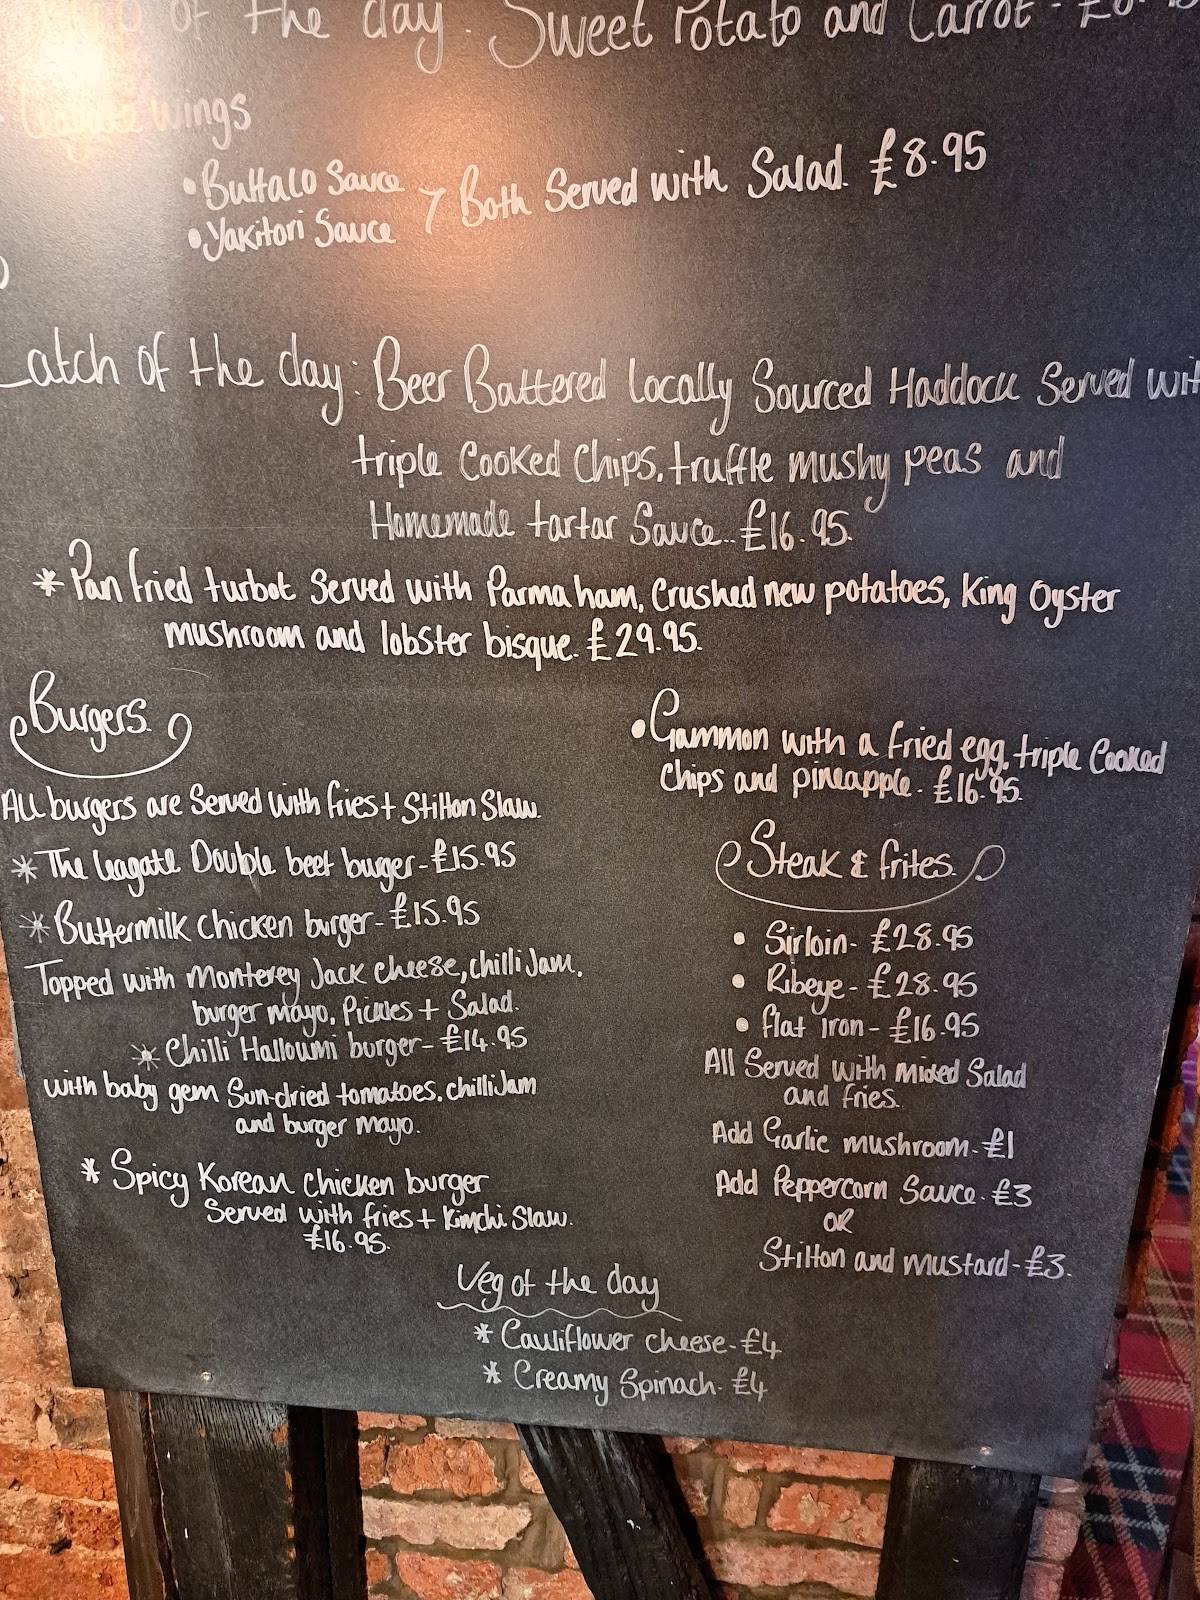 of the day. Sweet Potato and Carrot - £6.
wings
• Buffalo Sauce
• Yakitori Sauce
Both Served with Salad. £8.95
Catch of the day: Beer Battered locally Sourced Haddock Served wit
triple Cooked Chips, truffle mushy peas and
Homemade tartar Sauce.. £16.95
* Pan fried turbot Served with Parma ham, Crushed new potatoes, King Oyster
mushroom and lobster bisque. £29.95.
Burgers.
All burgers are Served with fries + Stilton Slaw.
* The Leagate Double beef burger - £15.95
* Buttermilk chicken burger - £15.95
Topped with Monterey Jack cheese, chilli Jam,
burger mayo, Pickles + Salad.
* Chilli Halloumi burger - £14.95
with baby gem Sun-dried tomatoes, chilli Jam
and burger mayo.
* Spicy Korean chicken burger
Served with fries + Kimchi Slaw.
£16.95.
• Gammon with a fried egg, triple Cooked
Chips and pineapple. £16.95.
Steak & frites.
• Sirloin - £28.95
• Ribeye - £28.95
• flat iron - £16.95
All Served with mixed Salad
and fries.
Add Garlic mushroom - £1
Add Peppercorn Sauce - £3
OR
Stilton and mustard - £3.
Veg of the day
* Cauliflower cheese - £4
* Creamy Spinach - £4